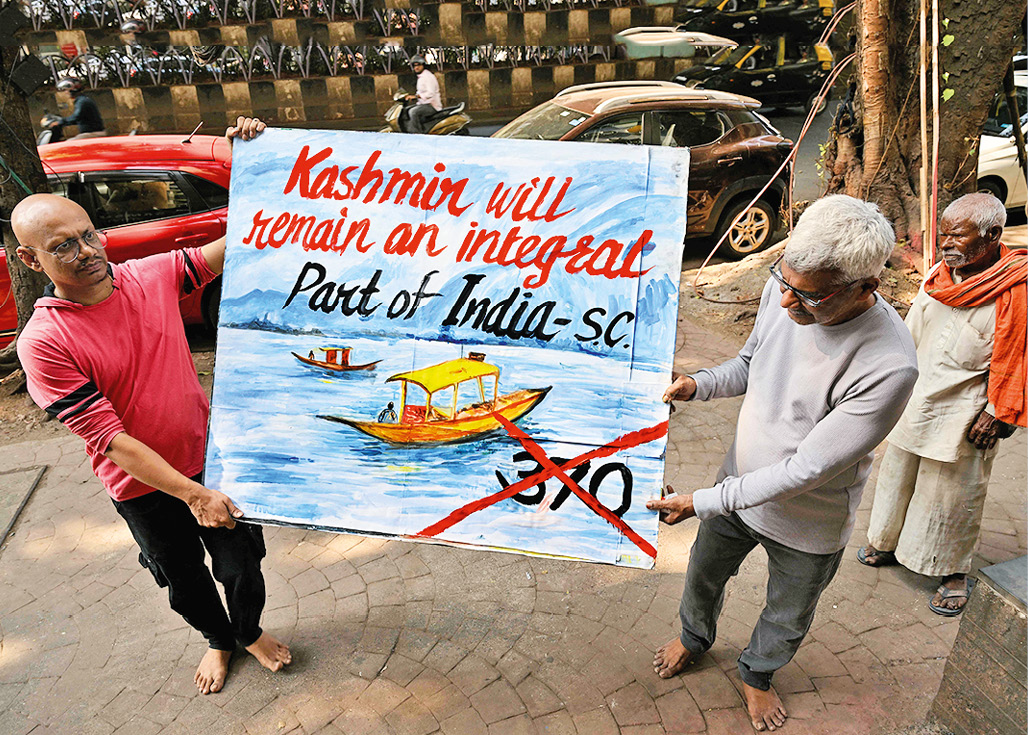 Kashmir will
remain an integral
Part of India - S.C.
370